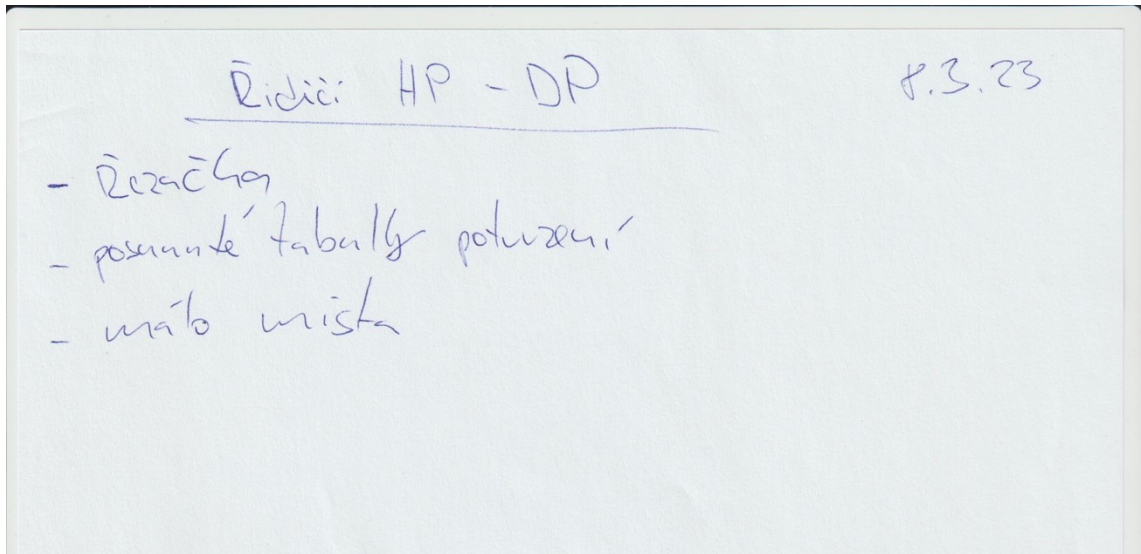 Řidiči HP - DP 8.3.23
- Řezačka
- posunuté tabulky potvrzení
- málo místa